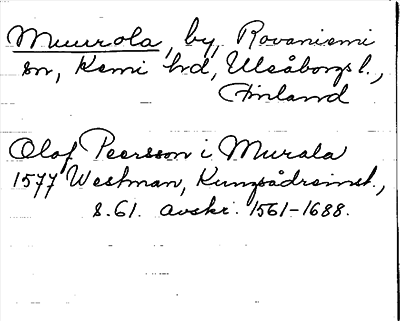 Muurola, by, Rovaniemi
sn, Kemi hd, Uleåborgs l.,
Finland
Olof Peersson i Murala
1577 Westman, Kungsådreinst.,
s. 61. avskr. 1561-1688.